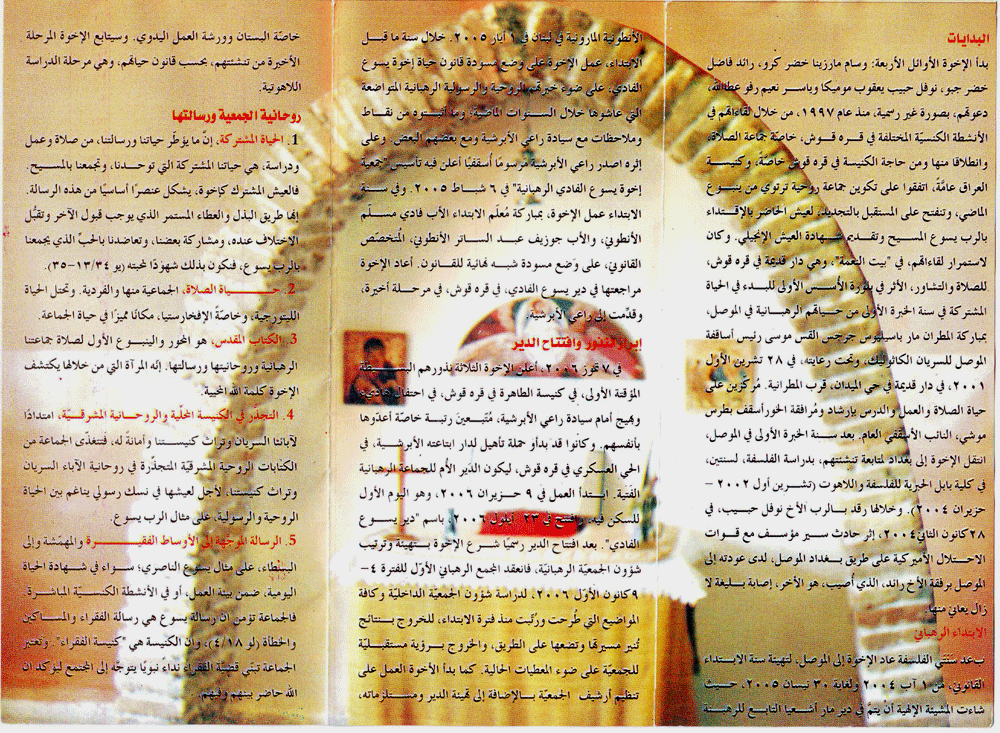 البدايات
بدأ الإخوة الأوائل الأربعة: وسام مارزينا خضر كرو، رائد فاضل
خضر جبو، نوفل حبيب يعقوب موميكا وياسر نعيم رفو عطاالله،
دعوتهم، بصورة غير رسمية، منذ عام ١٩٩٧، من خلال لقاءاتهم في
الأنشطة الكنسيّة المختلفة في قره قوش، خاصّة جماعة الصلاة.
وانطلاقا منها ومن حاجة الكنيسة في قره قوش خاصّة، وكنيسة
العراق عامّةً، اتفقوا على تكوين جماعة روحية ترتوي من ينبوع
الماضي، وتنفتح على المستقبل بالتجديد، لعيش الحاضر بالإقتداء
بالرب يسوع المسيح وتقديم شهادة العيش الإنجيلي. وكان
لاستمرار لقاءاتهم، في "بيت النعمة"، وهي دار قديمة في قره قوش،
للصلاة والتشاور، الأثر في بلورة الأسس الأولى للبدء في الحياة
المشتركة في سنة الخبرة الأولى من حياتهم الرهبانية في الموصل،
بمباركة المطران مار باسيليوس جرجس القس موسى رئيس أساقفة
الموصل للسريان الكاثوليك، وتحت رعايته، في ٢٨ تشرين الأول
٢٠٠١، في دار قديمة في حي الميدان، قرب المطرانية. مُركّزين على
حياة الصلاة والعمل والدرس بإرشاد ومُرافقة الخورأسقف بطرس
موشي، النائب الأسقفي العام. بعد سنة الخبرة الأولى في الموصل،
انتقل الإخوة إلى بغداد لمتابعة تنشئتهم، بدراسة الفلسفة، لسنتين،
في كلية بابل الحبرية للفلسفة واللاهوت (تشرين أول ٢٠٠٢ –
حزيران ٢٠٠٤). وخلالها رقد بالرب الأخ نوفل حبيب، في
٢٨ كانون الثاني ٢٠٠٤، إثر حادث سير مؤسف مع قوات
الاحتلال الأميركية على طريق بغداد الموصل، لدى عودته إلى
الموصل برفقة الأخ رائد، الذي أصيب، هو الآخر، إصابة بليغة لا
زال يعاني منها.
الابتداء الرهباني
بعد سَنَتَي الفلسفة عاد الإخوة إلى الموصل، لتهيئة سنة الابتداء
القانوني، من ١ آب ٢٠٠٤ ولغاية ٣٠ نيسان ٢٠٠٥، حيث
شاءت المشيئة الإلهية أنْ يتمّ في دير مار أشعيا التابع للرهبنة
الأنطونية المارونية في لبنان في ١ أيار ٢٠٠٥. خلال سنة ما قبل
الابتداء، عمل الإخوة على وضع مسودة قانون حياة إخوة يسوع
الفادي، على ضوء خبرتهم الروحية والرسولية الرهبانية المتواضعة
التي عاشوها خلال السنوات الماضية، وما أثبتوه من نقاط
وملاحظات مع سيادة راعي الأبرشية ومع بعضهم البعض. وعلى
إثره اصدر راعي الأبرشية مرسومًا أسقفيًا أعلن فيه تأسيس "جمعية
إخوة يسوع الفادي الرهبانية" في ٦ شباط ٢٠٠٥. وفي سنة
الابتداء عمل الإخوة، بمباركة مُعلّم الابتداء الأب فادي مسلّم
الأنطوني، والأب جوزيف عبد الساتر الأنطوني، المُتخصّص
القانوني، على وَضع مسودة شبه نهائية للقانون. أعاد الإخوة
مراجعتها في دير يسوع الفادي، في قره قوش، في مرحلة أخيرة،
وقدّمت إلى راعي الأبرشية.
إبراز النذور وافتتاح الدير
في ٧ تموز ٢٠٠٦، أعلن الإخوة الثلاثة نذورهم البسيطة
المؤقتة الأولى، في كنيسة الطاهرة في قره قوش، في احتفال هادئ
وبهيج أمام سيادة راعي الأبرشية، مُتّبعينَ رتبة خاصّة أعدّوها
بأنفسهم. وكانوا قد بدأو حملة تأهيل لدار ابتاعته الأبرشية، في
الحي العسكري في قره قوش، ليكون الدَير الأُم للجماعة الرهبانية
الفتية. ابتدأ العمل في ٩ حزيران ٢٠٠٦، وهو اليوم الأول
للسكن فيه. وافتتح في ٢٣ ايلول ٢٠٠٦، باسم "دير يسوع
الفادي". بعد افتتاح الدير رسميًا شرع الإخوة بتهيئة وترتيب
شؤون الجمعيّة الرهبانيّة، فانعقد المجمع الرهباني الأوّل للفترة ٤–
٩ كانون الأوّل ٢٠٠٦، لدراسة شؤون الجمعيّة الداخليّة وكافة
المواضيع التي طُرحت ورُتّبت منذ فترة الابتداء، للخروج بنتائج
تُنير مسيرتها وتضعها على الطريق، والخروج برؤية مستقبليّة
للجمعيّة على ضوء المعطيات الحالية. كما بدأ الأخوة العمل على
تنظيم أرشيف الجمعيّة بالإضافة إلى تهيئة الدير ومستلزماته،
خاصّة البستان وورشة العمل اليدوي. وسيتابع الإخوة المرحلة
الأخيرة من تنشئتهم، بحسب قانون حياتهم، وهي مرحلة الدراسة
اللاهوتية.
روحانية الجمعية ورسالتها
1. الحياة المشتركة. إنّ ما يؤطّر حياتنا ورسالتنا، من صلاة وعمل
ودراسة، هي حياتنا المشتركة التي توحدنا، وتجمعنا بالمسيح.
فالعيش المشترك كإخوة، يشكل عنصرًا أساسيًا من هذه الرسالة.
إنها طريق البذل والعطاء المستمر الذي يوجب قبول الآخر وتقبُّل
الاختلاف عنده، ومشاركة بعضنا، وتعاضدنا بالحبّ الذي يجمعنا
بالرب يسوع، فنكون بذلك شهودًا لمحبته (يو ١٣/٣٤-٣٥).
2. حياة الصلاة، الجماعية منها والفردية. وتحتل الحياة
الليتورجية، وخاصّة الإفخارستيا، مكانًا مميّزا في حياة الجماعة.
3. الكتاب المقدس، هو المحور والينبوع الأول لصلاة جماعتنا
الرهبانية وروحانيتها ورسالتها. إنّه المرآة التي من خلالها يكتشف
الإخوة كلمة الله المحيية.
4. التجذر في الكنيسة المحلّية والروحانية المشرقيّة، امتدادًا
لآبائنا السريان وتراث كنيستنا وأمانةً له، فتتغذّى الجماعة من
الكتابات الروحية المشرقيّة المتجذّرة في روحانية الآباء السريان
وتراث كنيستنا، لأجل لعيشها في نسك رسولي يتاغم بين الحياة
الروحية والرسولية، على مثال الرب يسوع.
5. الرسالة الموجّهة إلى الأوساط الفقيرة والمهمّشة وإلى
البسطاء، على مثال يسوع الناصري؛ سواء في شهادة الحياة
اليومية، ضمن بيئة العمل، أو في الأنشطة الكنسيّة المباشرة.
فالجماعة تؤمن ان رسالة يسوع هي رسالة الفقراء والمساكين
والخطأة (لو ٤/١٨)، وان الكنيسة هي "كنيسة الفقراء". وتعتبر
الجماعة تبنّي قضيّة الفقراء نداءً نبويًا يتوجّه إلى المجتمع ليؤكد ان
الله حاضر بينهم وفيهم.